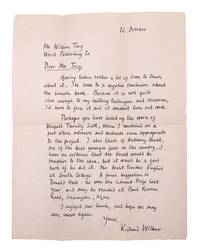 12 October
Mr William Targ
World Publishing Co.
Dear Mr. Targ,
Having taken rather a lot of time to think
about it, I've come to a negative conclusion about
the limerick book. Because it is not quite
close enough to my existing techniques and concerns,
I'd have to force it and it wouldn't turn out well.
Perhaps you have looked up the work of
Winfield Townley Scott, whom I mentioned as a
poet whose interests and methods seem appropriate
to the project. I also think of Anthony Hecht,
one of the best younger poets in the country; I
have no notion that Mr. Hecht would be
receptive to the idea, but it would be a good
book if he did it. Mr. Hecht teaches English
at Smith College. A further suggestion is
Donald Hall: he won the Lamont Prize last
year, and may be reached at Paul Revere
Road, Lexington, Mass.
I enjoyed our lunch, and hope we may
soon meet again.
Yours,
Richard Wilbur